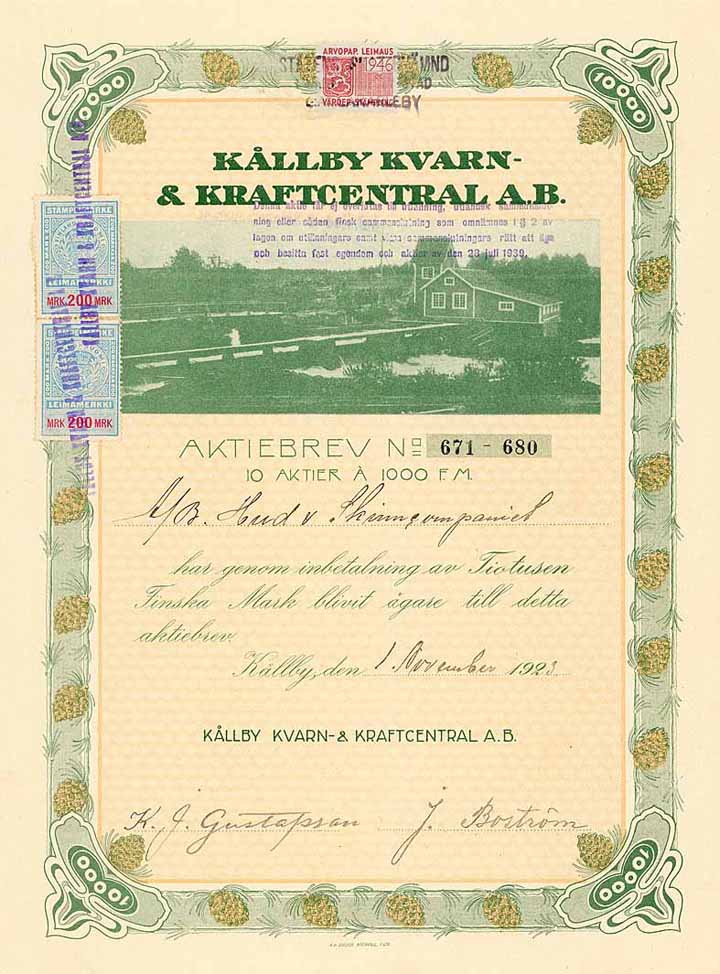 10000
ARVOPAP. LEIMAUS
1946
VÄRDEP. STÄMPLING
10000
KÅLLBY KVARN-
& KRAFTCENTRAL A.B.
Denna aktie får ej överlåtas till utlänning, utländsk
ning eller sådan finsk sammanslutning som omnämnes i § 2 av
lagen om utlänningars samt vissa sammanslutningars rätt att äga
och besitta fast egendom och aktier av den 28 juli 1939.
STÄMPELMÄRKE
MRK. 200 MRK
LEIMAMERKKI
STÄMPELMÄRKE
MRK 200 MRK
LEIMAMERKKI
KÅLLBY KVARN & KRAFTCENTRAL A.B.
AKTIEBREV No 671 - 680
10 AKTIER À 1000 F.M.
A/B. Hud & Skinnkompaniet
har genom inbetalning av Tiotusen
Finska Mark blivit ägare till detta
aktiebrev.
Kållby, den 1 November 1923
KÅLLBY KVARN- & KRAFTCENTRAL A.B.
K. J. Gustafsson J. Boström
10000
10000